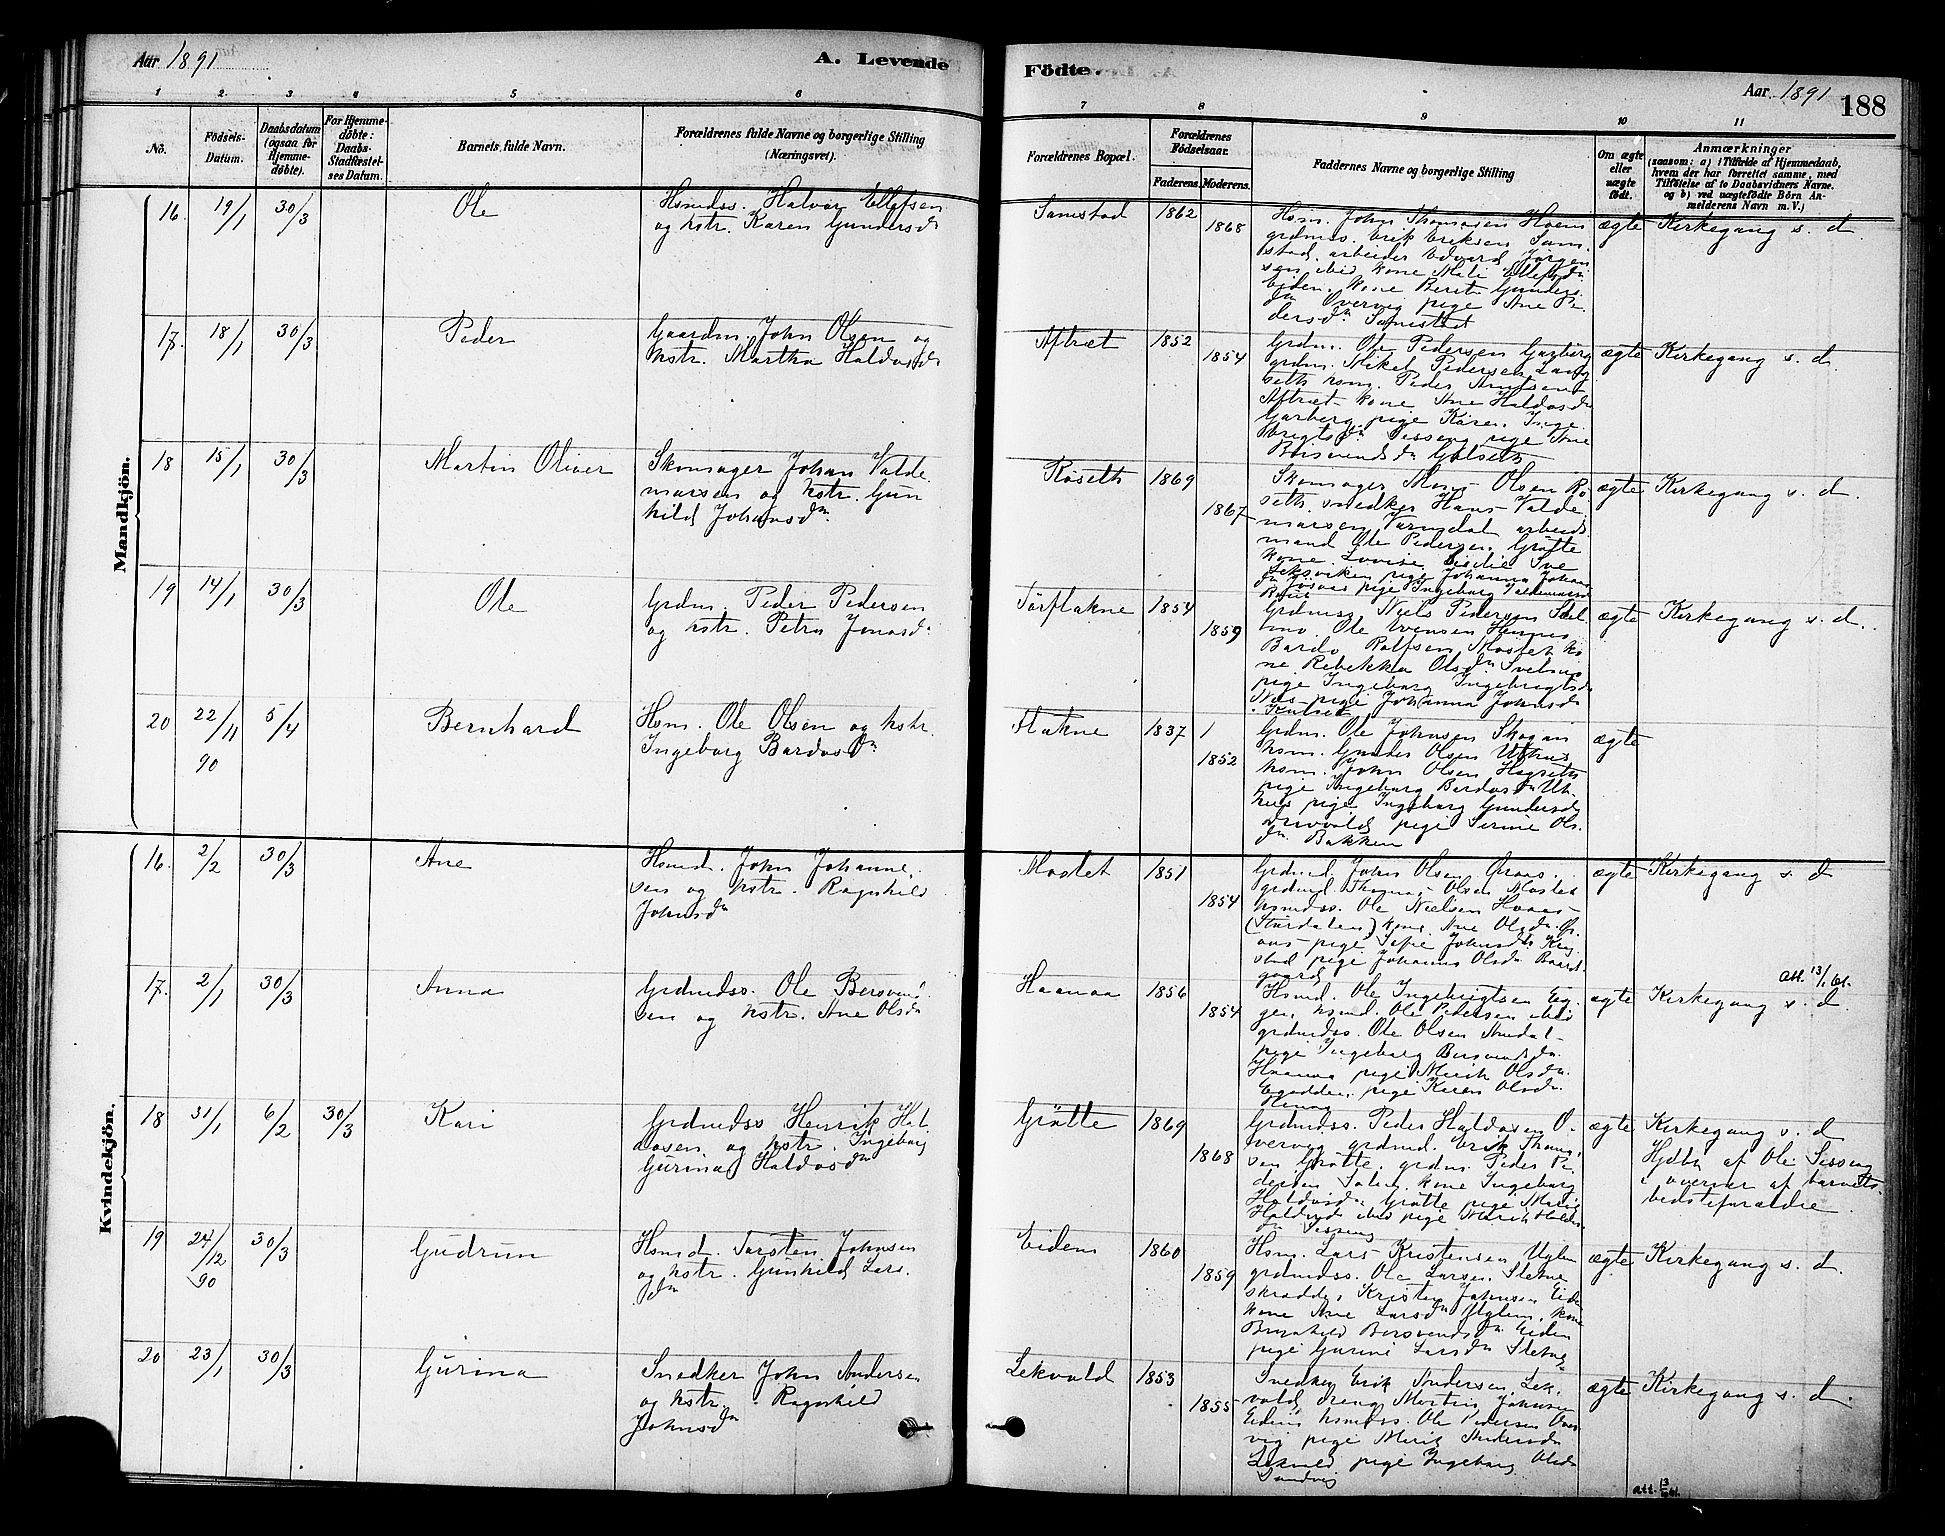 Aar 1891
A. Levende
Födte.
Aar 1891
188
1 2 3 4 5 6
7 8 9 10 11
No.
Födsels-
Datum.
Daabsdatum
(ogsaa for
Hjemme-
døbte).
For Hjemme-
døbte:
Daabs-
Stadfæstel-
ses Datum.
Barnets fulde Navn.
Forældrenes fulde Navne og borgerlige Stilling
(Næringsvei).
Forældrenes Bopæl.
Forældrenes
Födselsaar.
Faderens.
Moderens.
Faddernes Navne og borgerlige Stilling
Om ægte
eller
uægte
født.
Anmærkninger
(saasom: a) i Tilfælde af Hjemmedaab,
hvem der har forrettet samme, med
Tilføielse af to Daabsvidners Navne.
og b) ved uægtefødte Børn An-
melderens Navn m.V.)
Mandkjön.
16. 19/1 30/3 Ole
Hsmdss. Halvor Ellefsen
og kstr. Karen Gundersdn
Samstad 1862
1868
Hsm. John Thomasen Hoem
grdmss. Erik Eriksen Sam-
stad, arbeider Edvard Jörgen
sen ibid kone Mali Ellefsdn
Eiden, kone Berit Gunders
dn Overvig pige Ane Pe-
dersdn Samstad
ægte Kirkegang s. d.
17. 18/1 30/3 Peder
Gaardm. John Olsen og
kstr. Martha Haldosdn
Aftret 1852
1854
Grdm. Ole Pedersen Garberg
grdm. Mikel Pedersen Lang
seth hsm. Peder Arntsen
Aftret kone Ane Haldosdn
Garberg pige Karen Inge
brigtsdn Sesseng pige Ane
Bersvendsdn Galseth
ægte Kirkegang s. d.
18 15/1 30/3 Martin Oliver
Skomager Johan Valde
marsen og kstr. Gun
hild Johansdn
Röseth 1869
1867
Skomager Mons Olsen Rö
seth, snedker Hans Valde
marsen Varmdal arbeids
mand Ole Pedersen Gröfte
kone Lovise
Leksviken pige Johanna Johans
dn pige Ingeborg Valdemarsd
ægte Kirkegang s. d.
19 14/1 30/3 Ole
Grdm. Peder Pedersen
og kstr. Petra Jonasdn
Törflakne 1854
1859
Grdmss. Niels Pedersen Sel-
bmo. Ole Evensen
Bardo Rolfsen Mostet ko
ne Rebekka Olsdn
pige Ingeborg Ingebrigtsdn
Næs pige Johanna Johnsdn
ægte Kirkegang s. d.
20 22/11 90 5/4 Bernhard
Hsm. Ole Olsen og kstr.
Ingeborg Bardosdn
Flakne 1837
1852
Grdm. Ole Johnsen Skogan
hsm. Gunder Olsen Uthus
hsm. John Olsen Hagseth
pige Ingeborg Bardosdn Ut-
hus pige Ingeborg Gundersdn
pige Serine Ols
dn Bakken
ægte
Kvindekjön.
16. 2/2 30/3 Ane
Hsmd. John Johanne-
sen og kstr. Ragnhild
Johnsdn
Mostet 1851
1854
Grdmd. John Olsen
grdmd. Thomas Olsen Mostet
hsmdss. Ole Nielsen
(Stördalen) kone Ane Olsdn
pige Sofie Johnsdn
stad pige Johanna Olsdn Baards
gaard
ægte Kirkegang s. d
17. 2/1 30/3 Anna
Grdmdss. Ole Bersvend-
sen og kstr. Ane Olsdn
Haanaa 1856
1854
Hsmd. Ole Ingebrigtsen Eg-
gen, hsmd. Ole Pedersen ibid
grdmdss. Ole Olsen Amdal
pige Ingeborg Bersvendsdn
Haanaa pige Marit Olsdn
pige Karen Olsdn
ægte
att. 13/1 61.
Kirkegang s. d.
18 31/1 6/2 30/3 Kari
Grdmdss Henrik Hal-
dosen og kstr. Ingeborg
Gurina Haldosdn
Grötte 1869
1868
Grdmdss. Peder Haldosen O-
vervig grdmd. Erik Thoma-
sen Grötte. grdm. Peder Pe-
dersen kone Ingeborg
Haldosdn Grötte pige Mali
Haldosd ibid pige Marit Haldos
dn Sesseng
ægte Kirkegang s. d
Hjdbt af Ole Sesseng
i overvær af barnets
bedsteforældre.
19 24/12 90 30/3 Gudrun
Hsmd. Torsten Johnsen
og kstr. Gunhild Lars-
dn
Eidem 1860
1859
Hsm. Lars Kristensen Uglem
grdmdss. Ole Larsen Sletne
skrædder Kristen Johnsen Eide
kone Ane Larsdn Uglem, kone
Brynhild Bersvendsdn Eidem
pige Gurine Larsdn Sletne
ægte Kirkegang s. d.
20 23/1 30/3 Gurina
Snedker John Andersen
og kstr. Ragnhild
Johnsdn
Lekvold 1853
1855
Snedker Erik Andersen Lek-
vold, dreng Martin Johnsen
Eidem hsmdss. Ole Pedersen Over
vig pige Marit Andersdn
Lekvold pige Ingeborg Olsdn
Sandvig
ægte Kirkegang s. d.
att. 13/6 61.